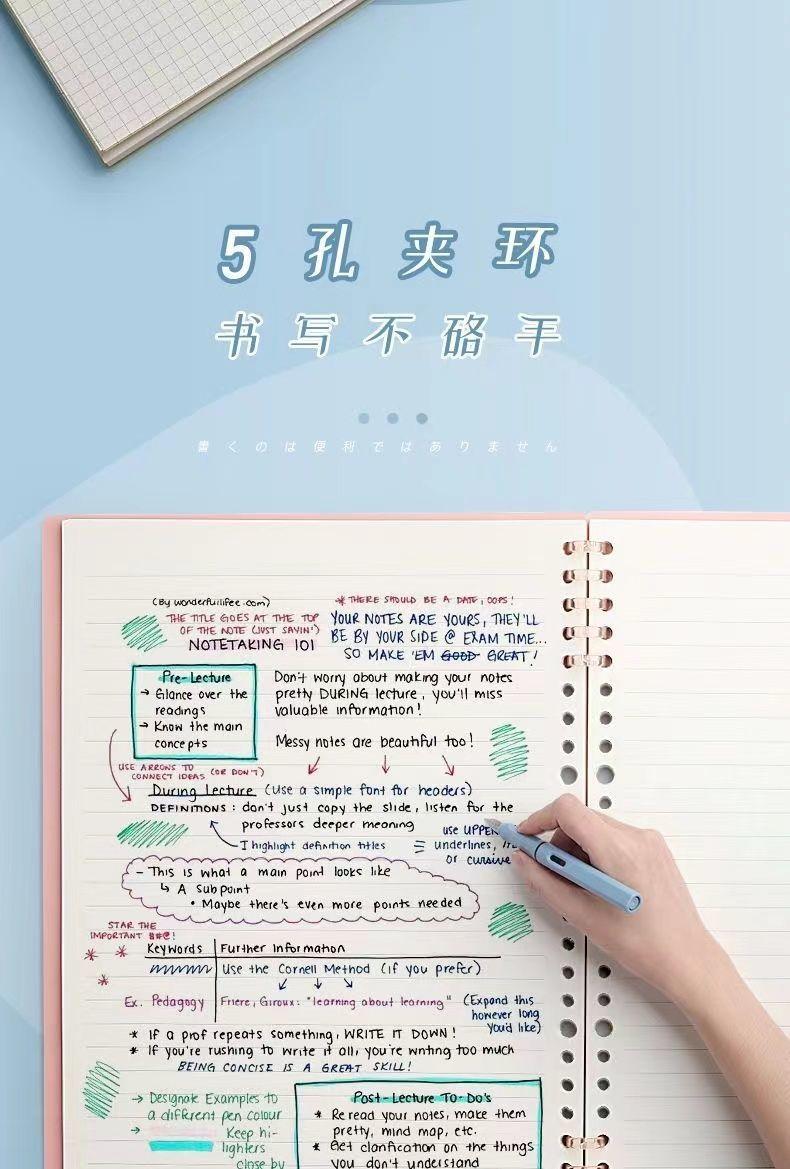 5孔夹环
书写不硌手
書くのは便利ではありません
(By wonderfuillifee.com)
* THERE SHOULD BE A DATE, OOPS!
THE TITLE GOES AT THE TOP
OF THE NOTE (JUST SAYIN')
NOTETAKING 101
YOUR NOTES ARE YOURS, THEY'LL
BE BY YOUR SIDE @ EXAM TIME...
SO MAKE 'EM GOOD GREAT!
Pre-Lecture
→ Glance over the
readings
→ Know the main
concepts
Don't worry about making your notes
pretty DURING lecture, you'll miss
valuable information!
Messy notes are beautiful too!
USE ARROWS TO
CONNECT IDEAS (OR DON'T)
During Lecture (Use a simple font for headers)
DEFINITIONS: don't just copy the slide, listen for the
professors deeper meaning
I highlight definition titles
use UPPER
underlines,
or cursive
- This is what a main point looks like
↳ A Subpoint
• Maybe there's even more points needed
STAR THE
IMPORTANT $#@!
Keywords Further Information
Use the Cornell Method (if you prefer)
Ex. Pedagogy Friere, Giroux: "learning about learning" (Expand this
however long
you'd like)
* If a prof repeats something, WRITE IT DOWN!
* If you're rushing to write it all, you're writing too much
BEING CONCISE IS A GREAT SKILL!
→ Designate Examples to
a different pen colour
→ Keep hi-
lighters
close by
Post-Lecture To-Do's
* Reread your notes, make them
pretty, mind map, etc.
* Get clarification on the things
you don't understand